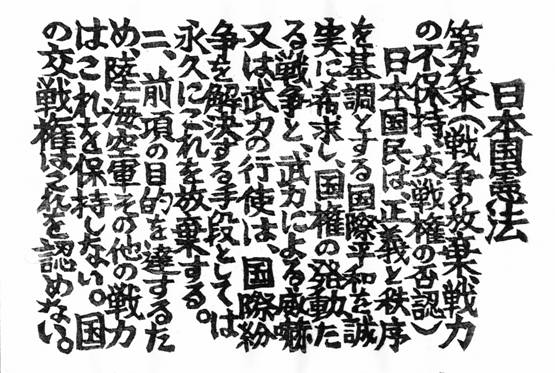 日本国憲法
第九条(戦争の放棄戦力
の不保持、交戦権の否認)
日本国民は正義と秩序
を基調とする国際平和を誠
実に希求し、国権の発動た
る戦争と、武力による威嚇
又は武力の行使は、国際紛
争を解決する手段としては
永久にこれを放棄する。
二、前項の目的を達するた
め、陸海空軍その他の戦力
はこれを保持しない。国
の交戦権はこれを認めない。